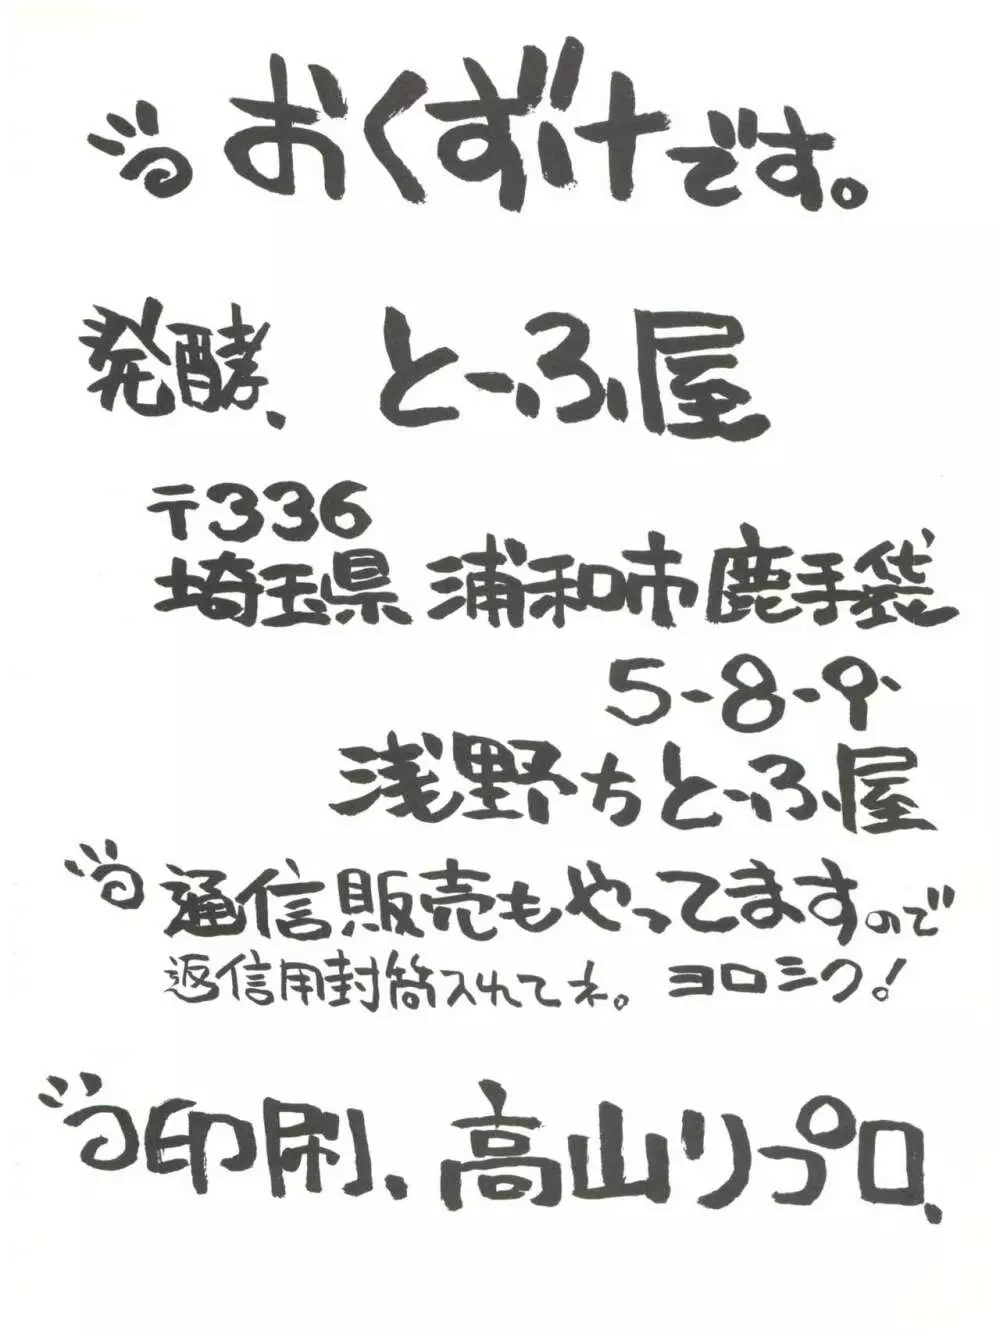 おくずけです。
発酵、とーふ屋
〒336
埼玉県浦和市鹿手袋
5-8-9
浅野ちとーふ屋
通信販売もやってますので
返信用封筒入れてネ。ヨロシク!
印刷、高山リプロ、